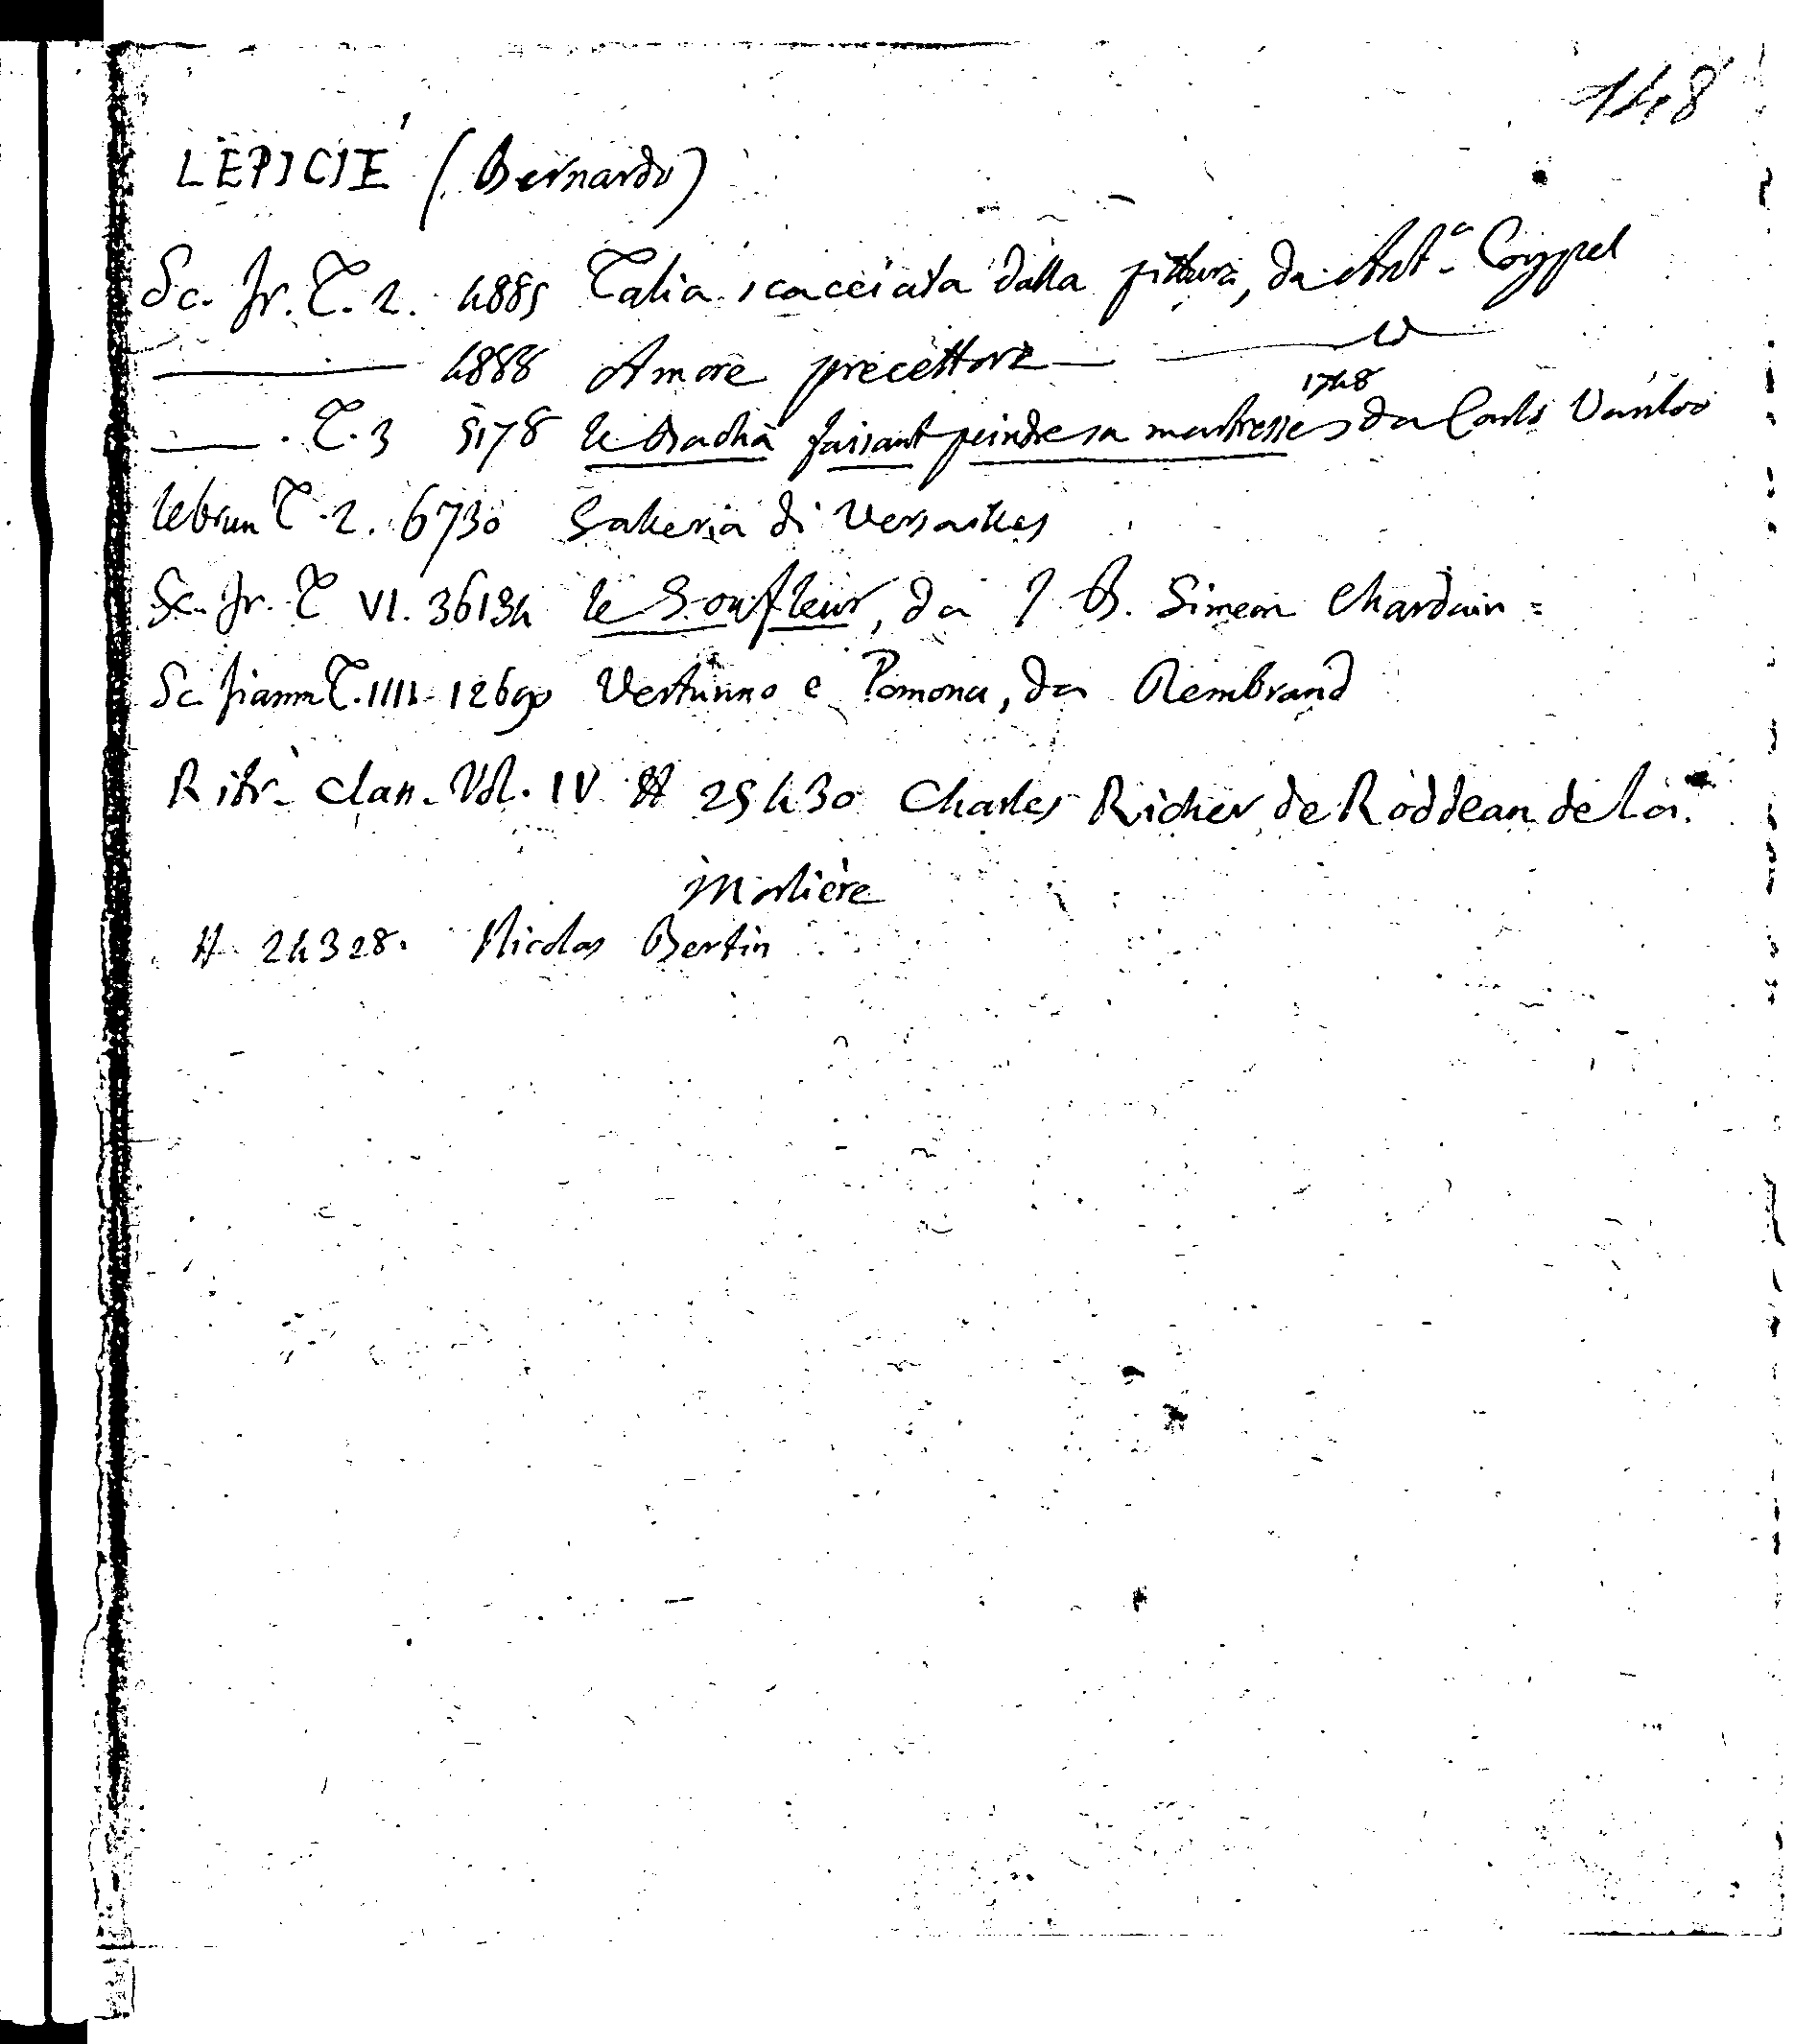 148
LEPICIÉ (Bernardo)
Sc. fr. T. 2. 4885 Talia scacciata dalla pittura, da Ant.° Coypel
——— 4888 Amore precettore — ——— id ———
1748
—— . T. 3 5178 le Bacha faisant peindre sa maitresse, da Carlo Vanloo
lebrun T. 2. 6730 Galleria di Versailles
Sc. fr. T VI. 36134 le Soufleur, da J. B. Simeon Chardain =
Sc. fiamm T. IIII. 12690 Vertunno e Pomona, da Rembrand
Ritr. Clan. Vol. IV # 25430 Charles Richer de Roddean de la
Morlière
# 24328. Nicolas Bertin